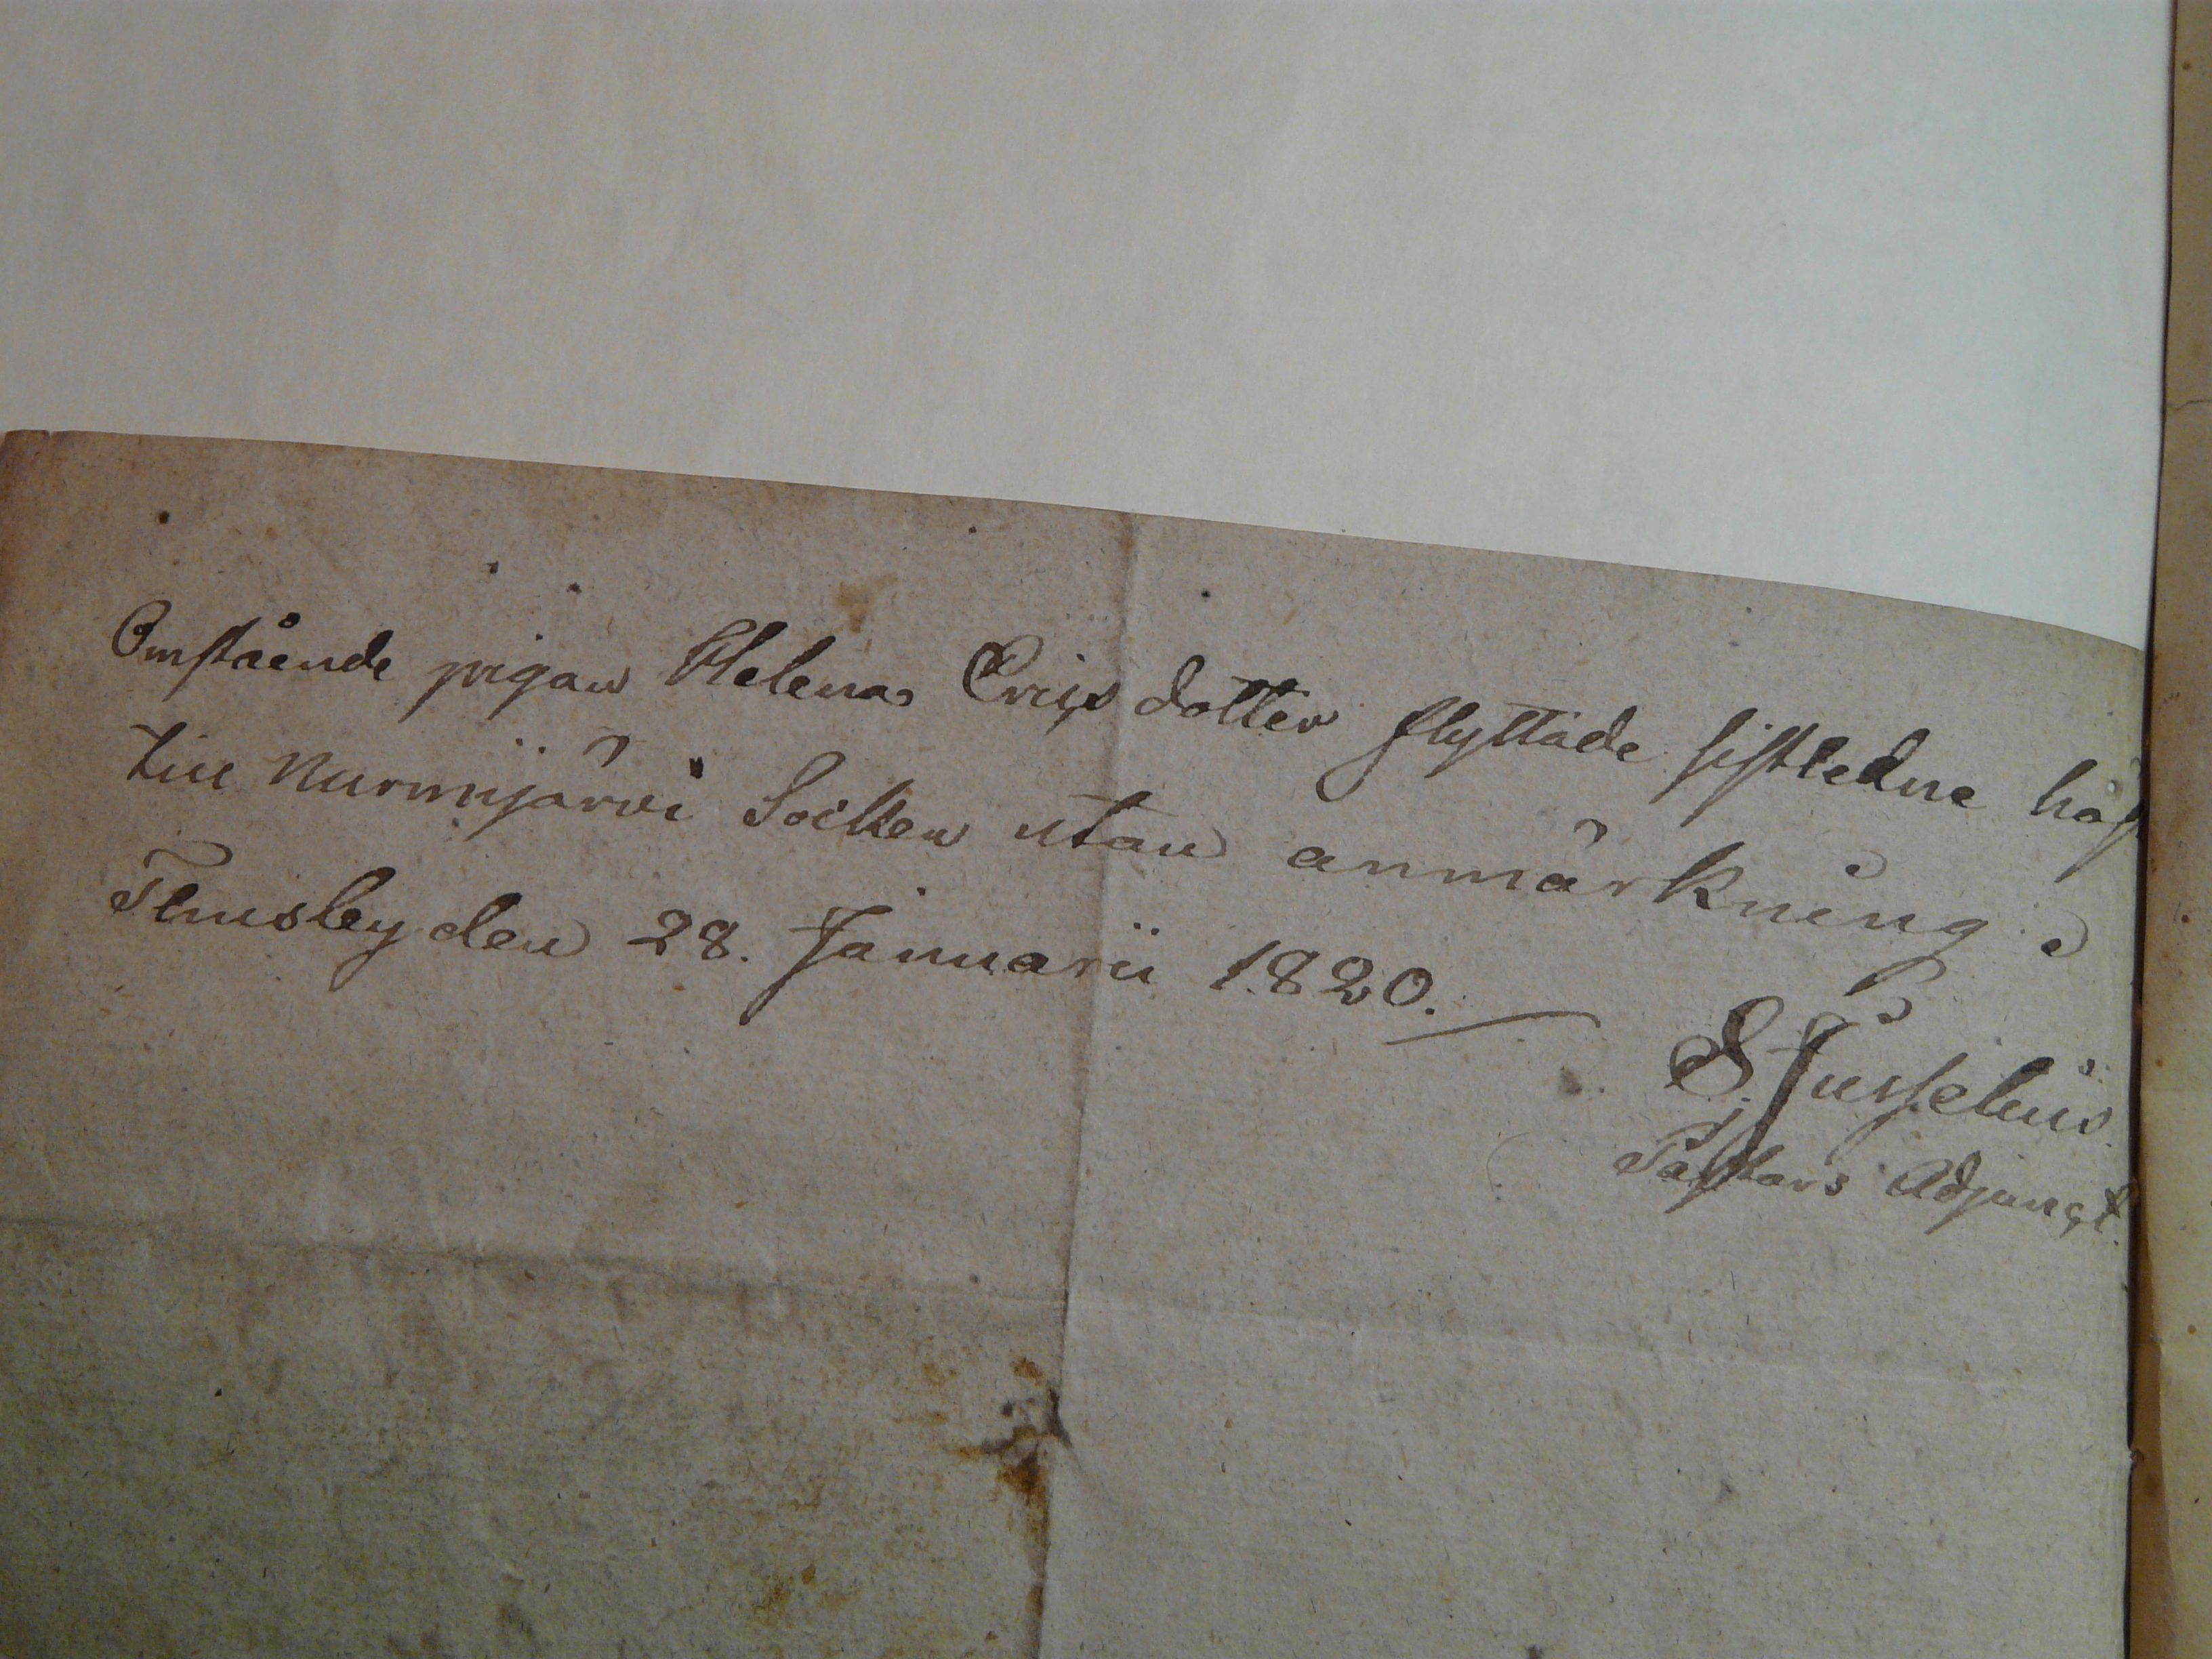 Omstående pigan Helena Erics dotter flyttade sistledne hös
till Nurmijärvi Socken utan anmärkning
den 28. Januarii 1820.
Pastors Adjunct.